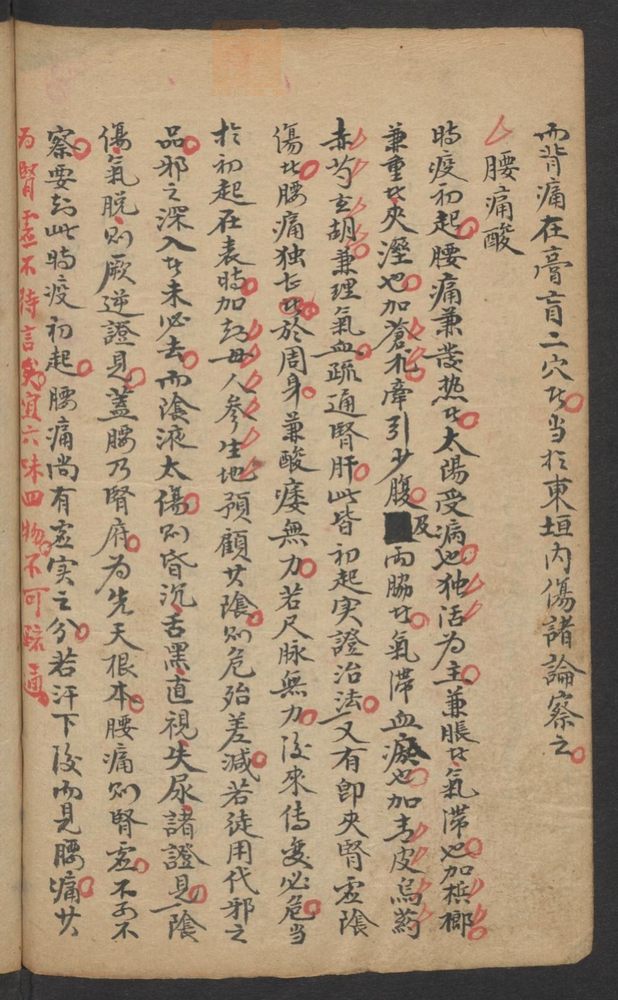 而背痛在膏肓二穴者当於東垣内傷諸論察之
腰痛酸
時疫初起腰痛兼發热者太陽受病也独活为主兼脹者氣滞也加槟榔
兼重者夹溼也加蒼朮牽引少腹及两脇者氣滞血瘀也加青皮烏药
赤芍玄胡兼理氣血疏通腎肝此皆初起实證治法又有即夹腎虚陰
傷者腰痛独甚於周身兼酸痿無力若尺脉無力後來傳变必危当
於初起在表時加知母人參生地預顧其陰则危殆差減若徒用伐邪之
品邪之深入者未必去而陰液太傷则昏沉舌黑直視失尿諸證見陰
傷氣脱则厥逆證見蓋腰乃腎府为先天根本腰痛则腎虚不可不
察要知此時疫初起腰痛尚有虚实之分若汗下後而見腰痛其
为腎虚不待言矣宜六味四物不可疏通